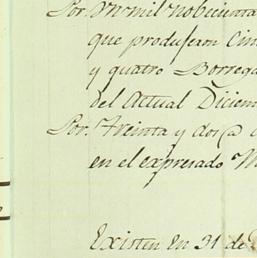 Por. Un mil nobecienta
que produjeron Cin
y quatro Borrega
del Actual Diciem
Por. Treinta y dos(a
en el expresado M
Existen en 31 de